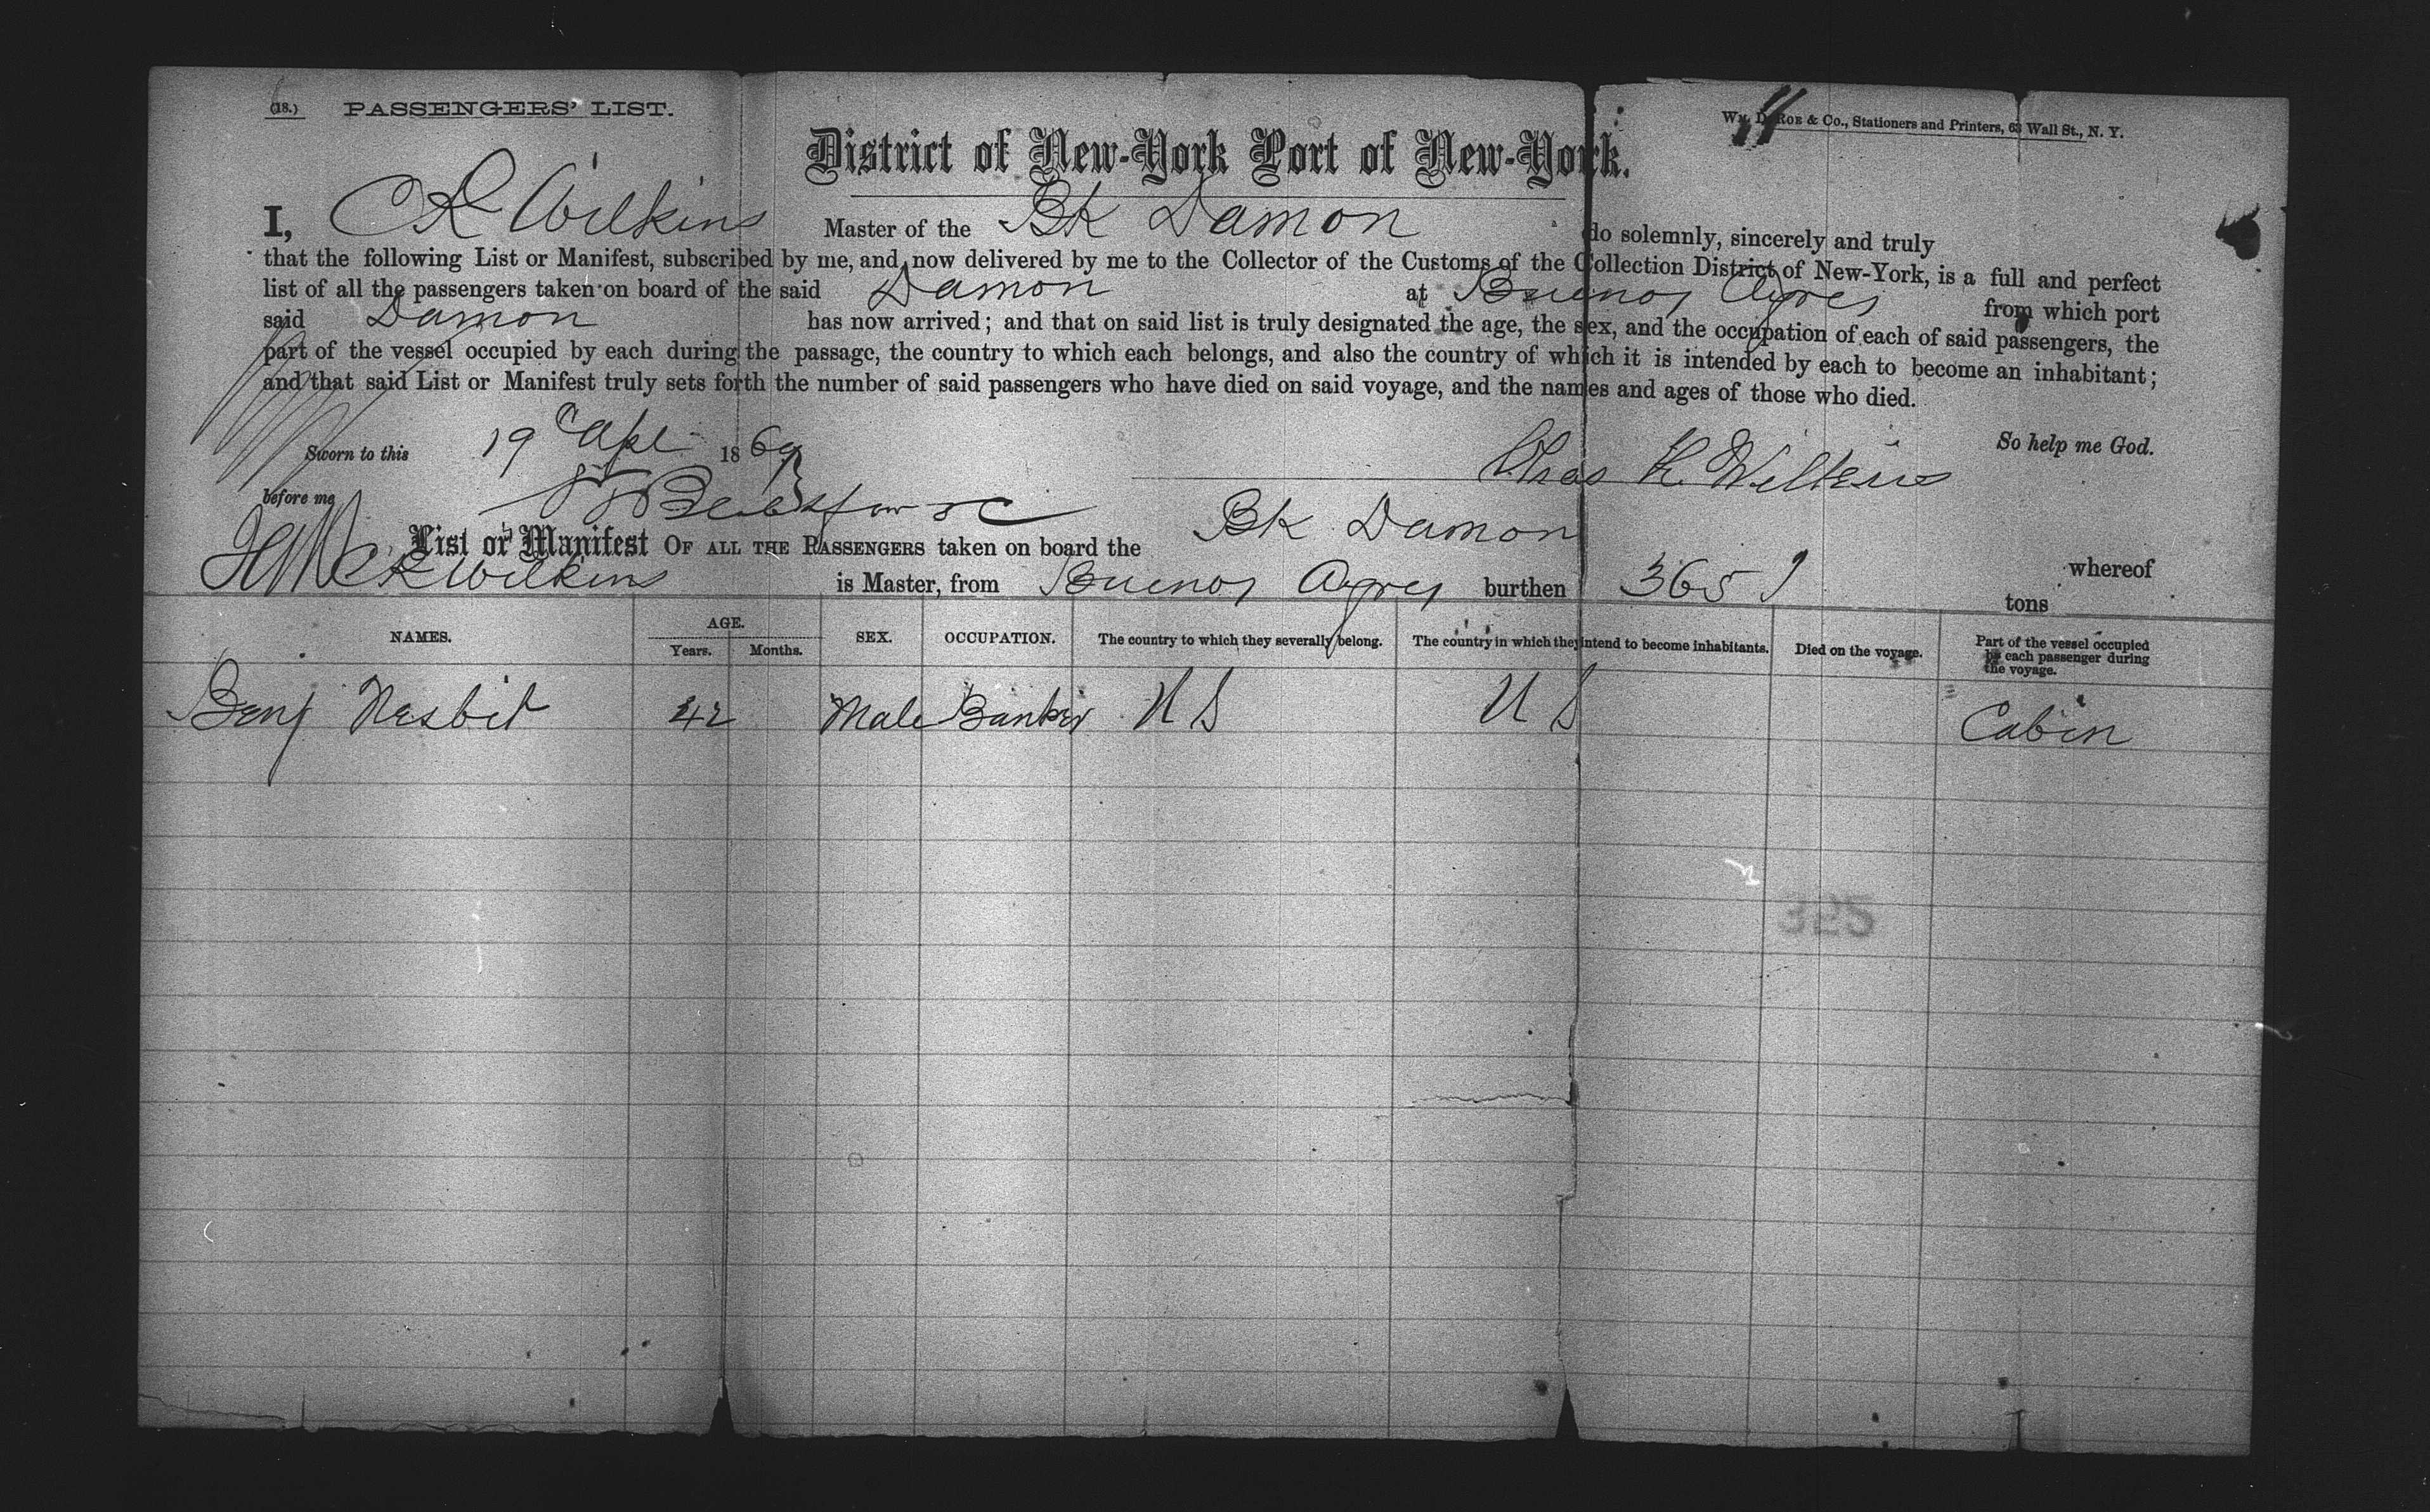 (18.) PASSENGERS' LIST.
Wm. D. Roe & Co., Stationers and Printers, 63 Wall St., N. Y.
District of New-York Port of New-York.
I, C R Wilkins Master of the Bk Damon do solemnly, sincerely and truly
that the following List or Manifest, subscribed by me, and now delivered by me to the Collector of the Customs of the Collection District of New-York, is a full and perfect
list of all the passengers taken on board of the said Damon at Buenos Ayres from which port
said Damon has now arrived; and that on said list is truly designated the age, the sex, and the occupation of each of said passengers, the
part of the vessel occupied by each during the passage, the country to which each belongs, and also the country of which it is intended by each to become an inhabitant;
and that said List or Manifest truly sets forth the number of said passengers who have died on said voyage, and the names and ages of those who died.
So help me God.
Sworn to this 19 Apl 1869
Chas R. Wilkins
before me
List or Manifest OF ALL THE PASSENGERS taken on board the Bk Damon whereof
C R Wilkins is Master, from Buenos Ayres burthen 365 tons
NAMES. AGE. Years. Months. SEX. OCCUPATION. The country to which they severally belong. The country in which they intend to become inhabitants. Died on the voyage. Part of the vessel occupied by each passenger during the voyage.
Benj Nesbit 42 Male Banker U S U S Cabin
325